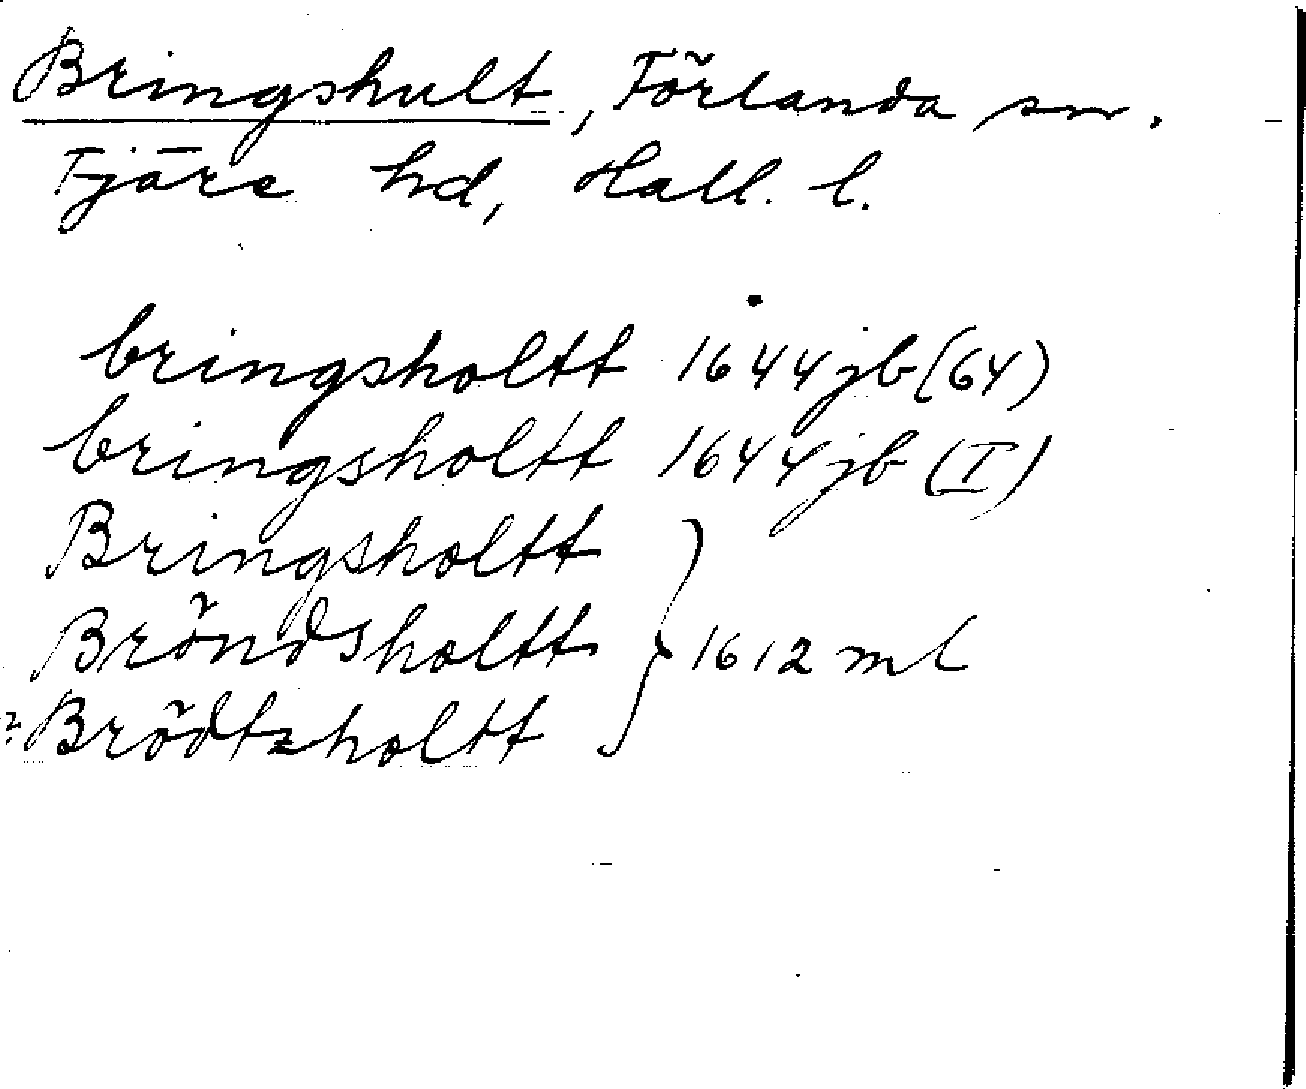 Bringshult, Förlanda sn.
Fjäre hd, Hall. l.
bringsholtt 1644 jb (64)
bringsholtt 1644 jb (I)
Bringsholtt
Bröndsholtt } 1612 ml
?Brödtzholtt